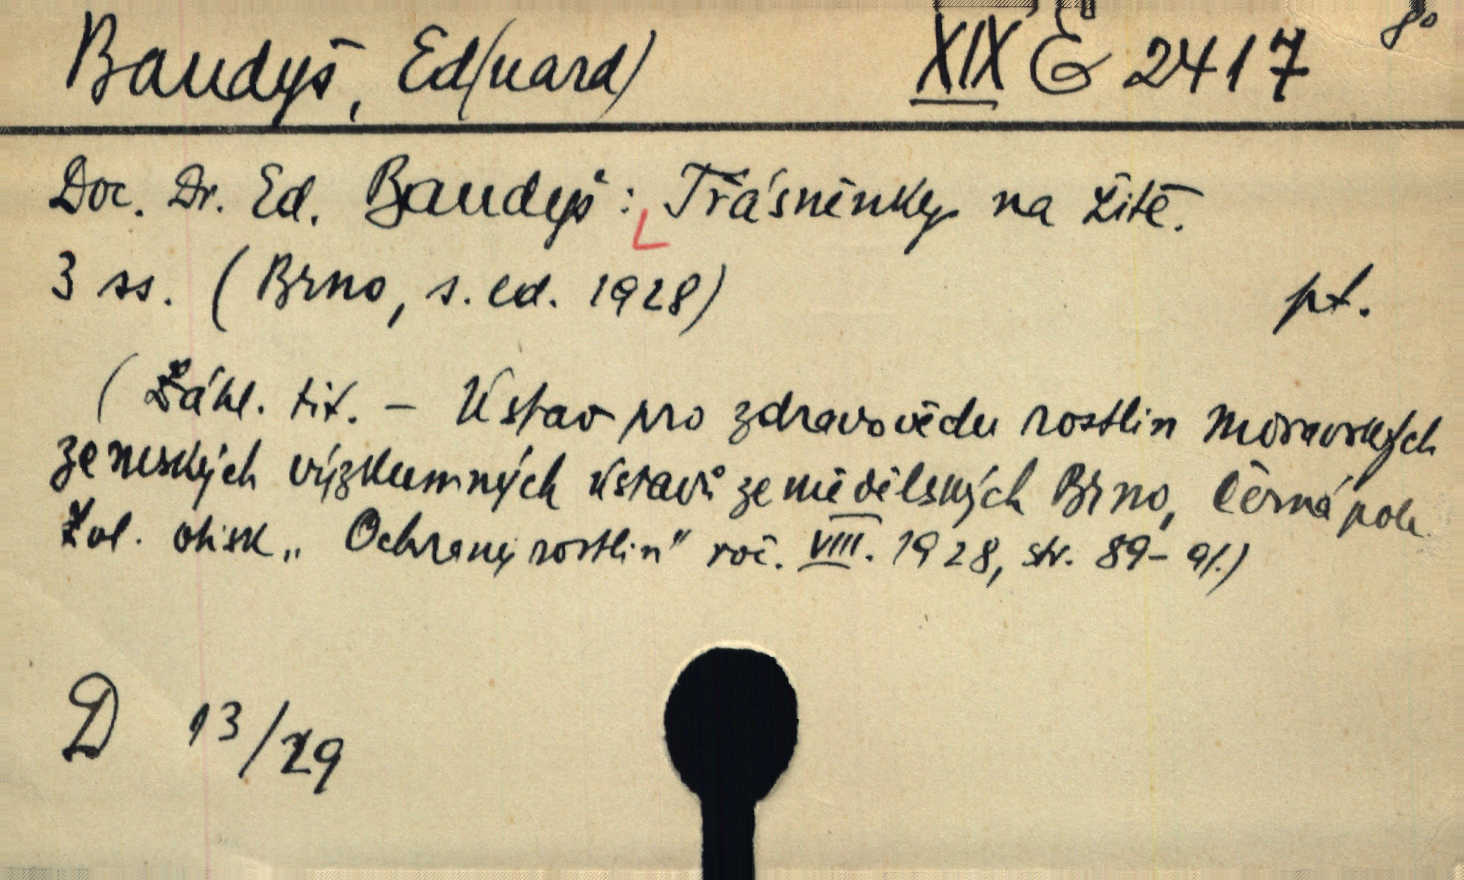 Baudyš, Ed(uard) XIX E 2417 8°
Doc. Dr. Ed. Baudyš: Třásněnky na žitě.
3 ss. (Brno, s. ed. 1928) pt.
(Záhl. tit. – Ústav pro zdravovědu rostlin moravských
zemských výzkumných ústavů zemědělských Brno, Černá pole.
Zvl. otisk „Ochrany rostlin" roč. VIII. 1928, str. 89–91.)
D 13/29